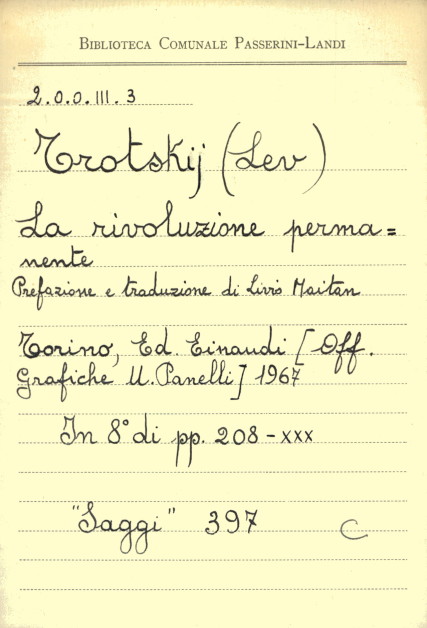 BIBLIOTECA COMUNALE PASSERINI-LANDI
2.0.0.III.3
Trotskij (Lev)
La rivoluzione perma=
nente
Prefazione e traduzione di Livio Maitan
Torino, Ed. Einaudi [Off.
Grafiche U. Panelli] 1967
In 8° di pp. 208 - xxx
"Saggi" 397 C